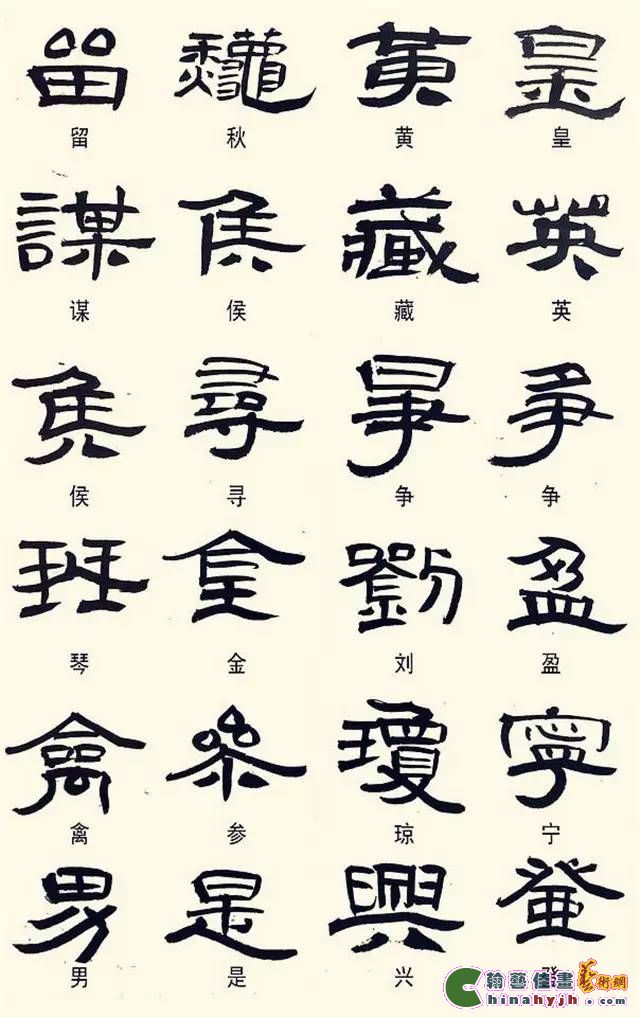 留 龝 黄 皇
留 秋 黄 皇
謀 侯 藏 英
谋 侯 藏 英
侯 尋 爭 爭
侯 寻 争 争
金 劉 盈
琴 金 刘 盈
禽 參 瓊 寧
禽 参 琼 宁
男 是 興
男 是 兴
翰藝佳畫藝術網
Chinahyjh.com